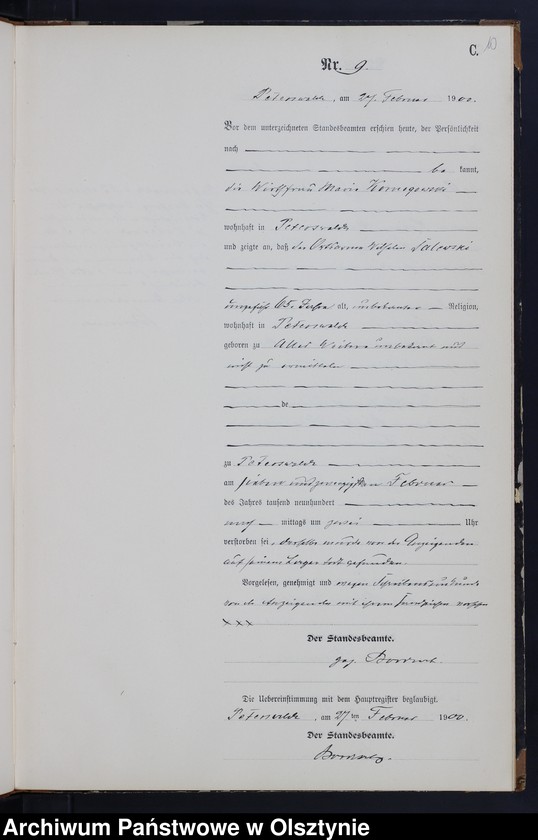 C. 10
Nr. 9.
Peterswalde, am 27. Februar 1900.
Vor dem unterzeichneten Standesbeamten erschien heute, der Persönlichkeit
nach
be kannt,
die Wirthfrau Marie
wohnhaft in Peterswalde
und zeigte an, daß der Ortsarme Wilhelm Salewski
ungefähr 65 Jahre alt, unbekannter Religion,
wohnhaft in Peterswalde
geboren zu Alles Weitere unbekannt und
nicht zu ermitteln
de
zu Peterswalde
am sieben und zwanzigsten Februar
des Jahres tausend neunhundert
nach mittags um zwei Uhr
verstorben sei, derselbe wurde von der Anzeigenden
auf seinem Lager todt gefunden.
Vorgelesen, genehmigt und wegen Schreibensunkunde
von der Anzeigenden mit ihrem Handzeichen versehen
XXX
Der Standesbeamte.
gez.
Die Uebereinstimmung mit dem Hauptregister beglaubigt.
Peterswalde, am 27ten Februar 1900.
Der Standesbeamte.
Archiwum Państwowe w Olsztynie